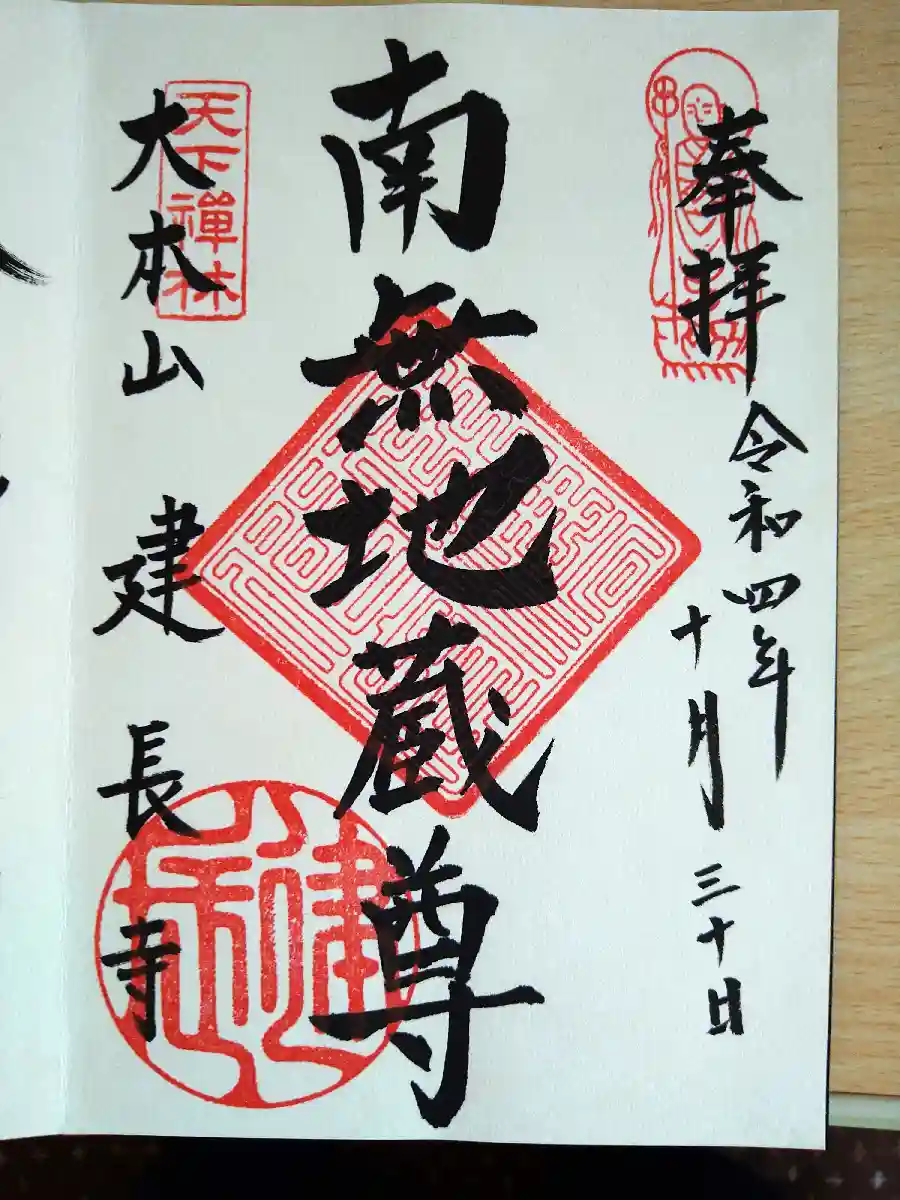 奉拝
令和四年
十月三十日
南無地蔵尊
天下禪林
大本山建長寺